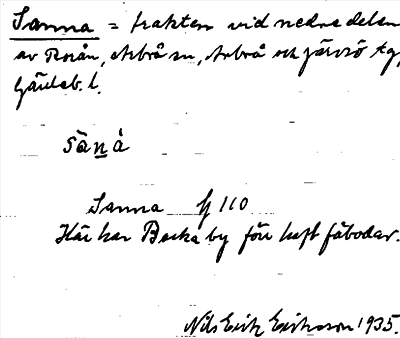 Sanna = trakten vid nedre delen
av Rosån, Arbrå sn, Arbrå och Järvsö tg,
Gävleb. l.
sānå
Sanna G 110
Här har Backa by före haft fäbodar.
Nils Erik Eriksson 1935.